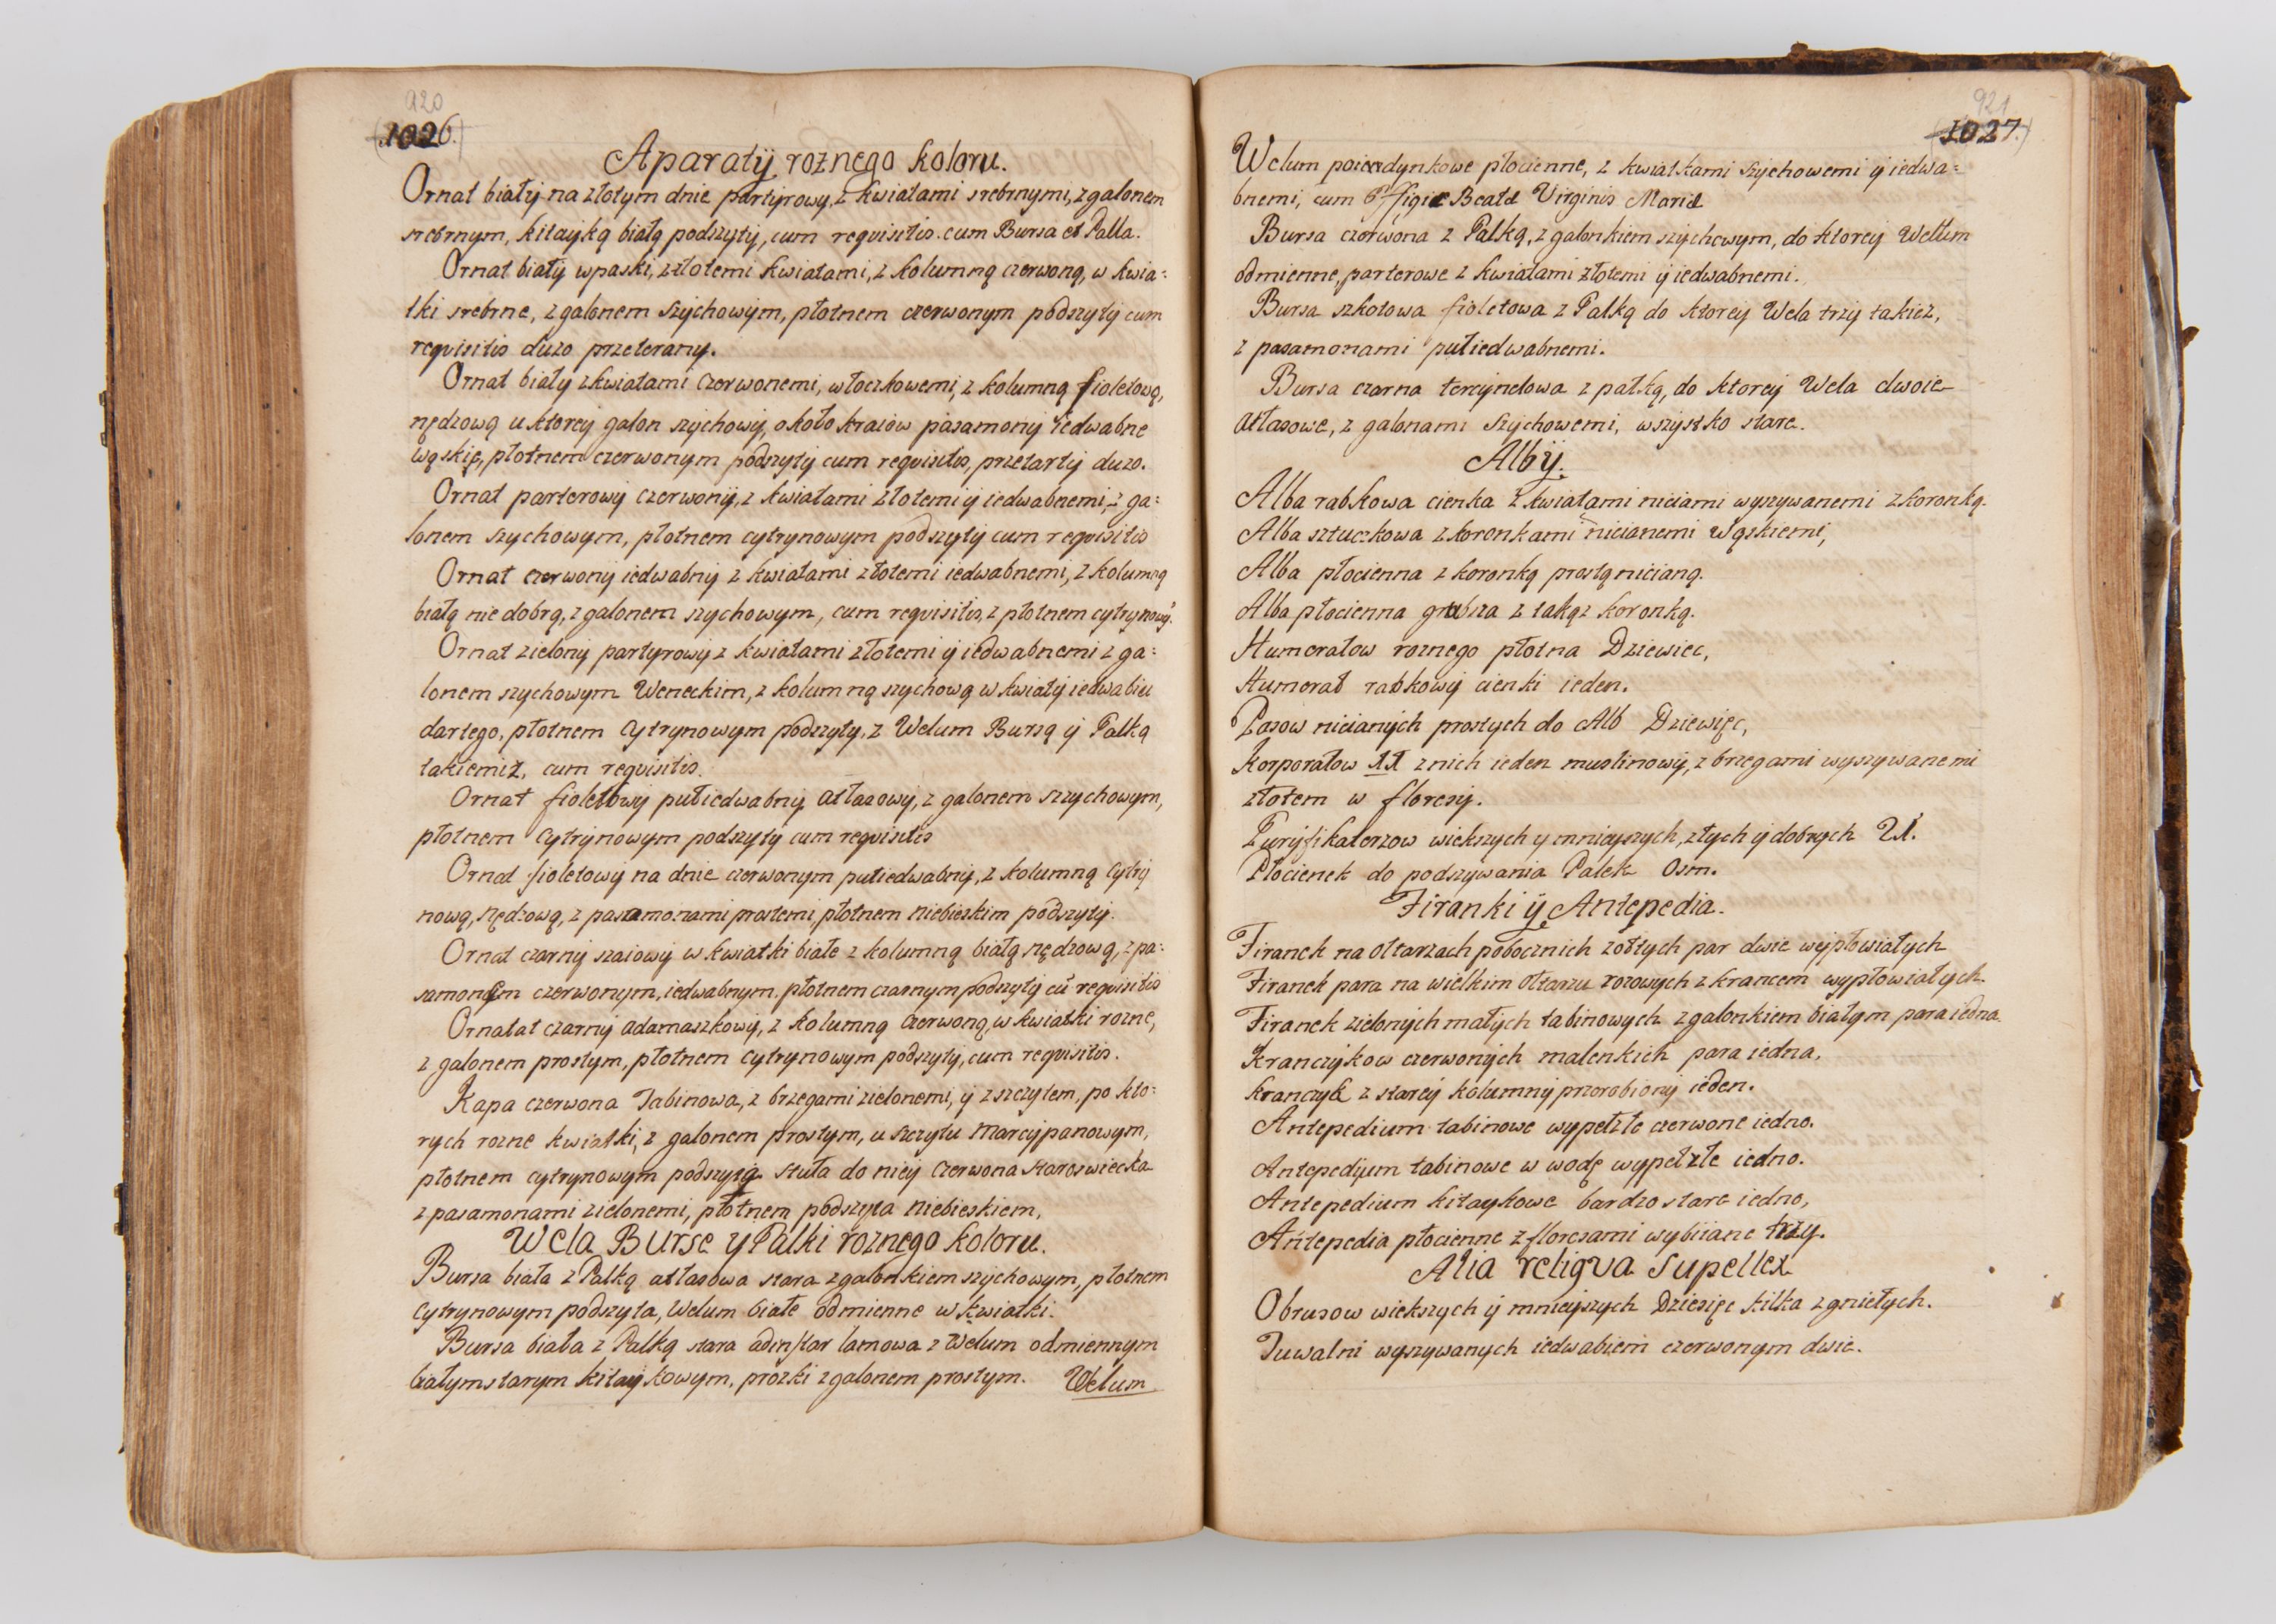 920
(1026.)
Aparaty roznego koloru.
Ornat biały na złotym dnie partyrowy, z kwiatami srebrnymi, z galonem
srebrnym, kitayką białą podszyty, cum requisitis cum Bursa et Palla.
Ornat biały w paski, z złotemi kwiatami, z kolumną czerwoną, w kwia=
tki srebrne, z galonem szychowym, płotnem czerwonym podszyty cum
requisitis duzo przeterany.
Ornat biały z kwiatami czerwonemi, włoczkowemi, z kolumną fioletową,
nędzową u ktorey galon szychowy, około kraiow pasamony iedwabne
wąskie, płotnem czerwonym podszyty cum requisitis, przetarty duzo.
Ornat parterowy czerwony, z kwiatami złotemi y iedwabnemi, z ga=
lonem szychowym, płotnem cytrynowym podszyty cum requisitis
Ornat czerwony iedwabny z kwiatami złotemi iedwabnemi, z kolumną
białą nie dobrą, z galonem szychowym, cum requisitis, z płotnem cytrynowȳ.
Ornat zielony partyrowy z kwiatami złotemi y iedwabnemi z ga=
lonem szychowym Weneckim, z kolumną szychową w kwiaty iedwabiu
dartego, płotnem Cytrynowym podszyty, z Welum Bursą y Palką
takiemiz, cum requisitis.
Ornat fioletowy pułiedwabny atłasowy, z galonem szychowym,
płotnem Cytrynowym podszyty cum requisitis
Ornat fioletowy na dnie czerwonym pułiedwabny, z kolumną Cytry
nową, nędzową, z pasamonami prostemi, płotnem niebieskim podszyty.
Ornat czarny szaiowy w kwiatki białe z kolumną białą nędzową, z pa=
samonem czerwonym, iedwabnym, płotnem czarnym podszyty cū requisitis
Ornatat czarny adamaszkowy, z kolumną czerwoną, w kwiatki rozne,
z galonem prostym, płotnem cytrynowym podszyty, cum requisitis.
Kapa czerwona Tabinowa, z brzegami zielonemi, y z szczytem, po kto=
rych rozne kwiatki, z galonem prostym, u szczytu marcypanowym,
płotnem cytrynowym podszyta stuła do niey czerwona staroswiecka
z pasamonami zielonemi, płotnem podszyta niebieskiem,
Wela Burse y Palki roznego koloru.
Bursa biała z Palką atłasowa stara z galonkiem szychowym, płotnem
cytrynowym podszyta, Welum białe odmienne w kwiatki.
Bursa biała z Palką stara adinstar lamowa z Welum odmiennym
białym starym kitaykowym, prozki z galonem prostym. Welum
921
(1027.)
Welum poiedynkowe płocienne, z kwiatkami szychowemi y iedwa=
bnemi, cum Effigie Beatæ Virginis Mariæ
Bursa czerwona z Palką, z galonkiem szychowym, do ktorey Wellum
odmienne, parterowe z kwiatami złotemi y iedwabnemi.
Bursa szkotowa fioletowa z Palką do ktorey Wela trzy takiez,
z pasamonami pułiedwabnemi.
Bursa czarna tercynelowa z palką, do ktorey Wela dwoie
atłasowe, z galonami szychowemi, wszystko stare.
Alby.
Alba rabkowa cienka z kwiatami niciami wyszywanemi z koronką.
Alba sztuczkowa z koronkami nicianemi wąskiemi,
Alba płocienna z koronką prostą nicianą.
Alba płocienna grubsza z takąz koronką.
Humerałow roznego płotna Dziewiec,
Humerał rabkowy cienki ieden.
Pasow nicianych prostych do Alb Dziewięc,
Korporałow 11 z nich ieden muslinowy, z brzegami wyszywanemi
złotem w floresy.
Puryfikaterzow wiekszych y mnieyszych, złych y dobrych 21.
Płocienek do podszywania Palek osm.
Firanki y Antepedia.
Firanek na ołtarzach pobocznich zołtych par dwie wypłowiałych
Firanek para na wielkim ołtarzu rozowych z krancem wypłowiałych.
Firanek zielonych małych tabinowych z galonkiem białym para iedna.
Kranczykow czerwonych malenkich para iedna,
kranczyk z starey kolumny przerobiony ieden.
Antepedium tabinowe wypełzłe czerwone iedno.
Antepedyum tabinowe w wodę wypełzłe iedno.
Antepedium kitaykowe bardzo stare iedno,
Antepedia płocienne z floresami wybiiane trzy.
Alia religva Supellex
Obrusow wiekszych y mnieyszych Dziesięc kilka zgniełych.
Tuwalni wyszywanych iedwabiem czerwonym dwie.